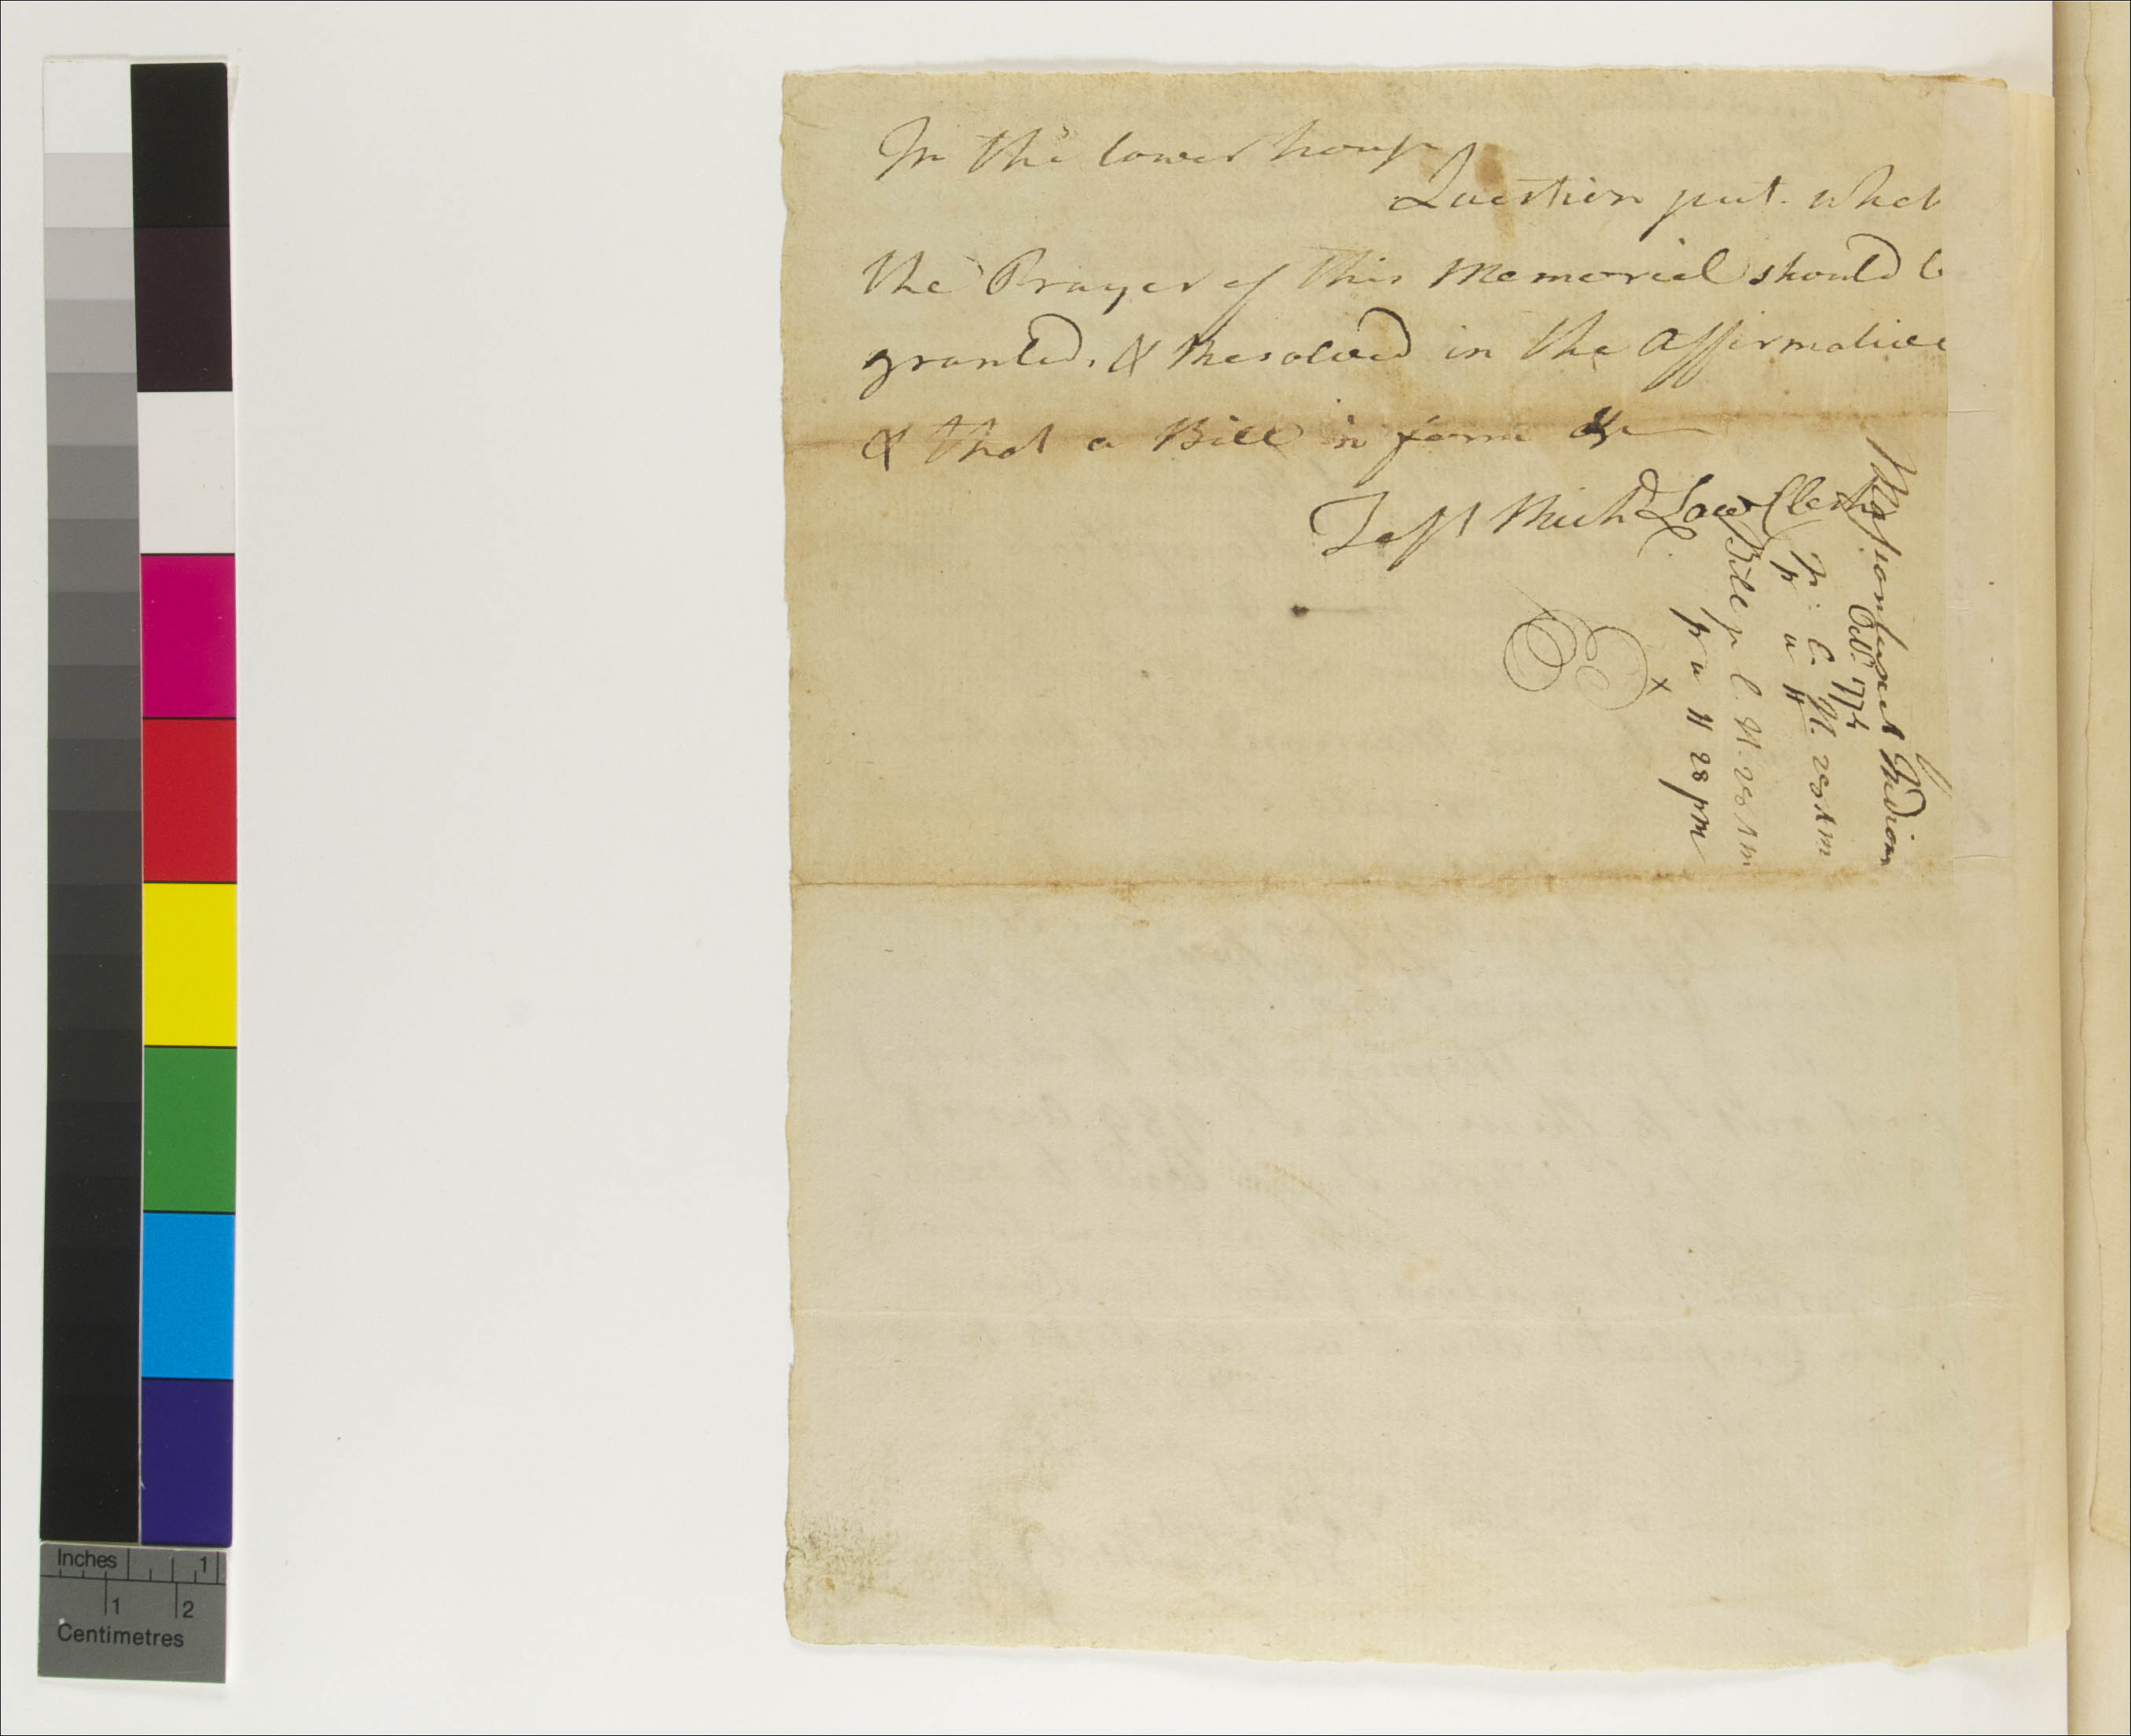 In the lower house
Question put. whet
the Prayer of this Memorial should b
granted. & Resolved in the affirmative
& that a Bill in form &c
Test Richd Law Clerk
Indian
Octr. 1774
p. L. H.
p u H
Bill p L. H.
p u H 28 pm
Inches 1
1 2
Centimetres